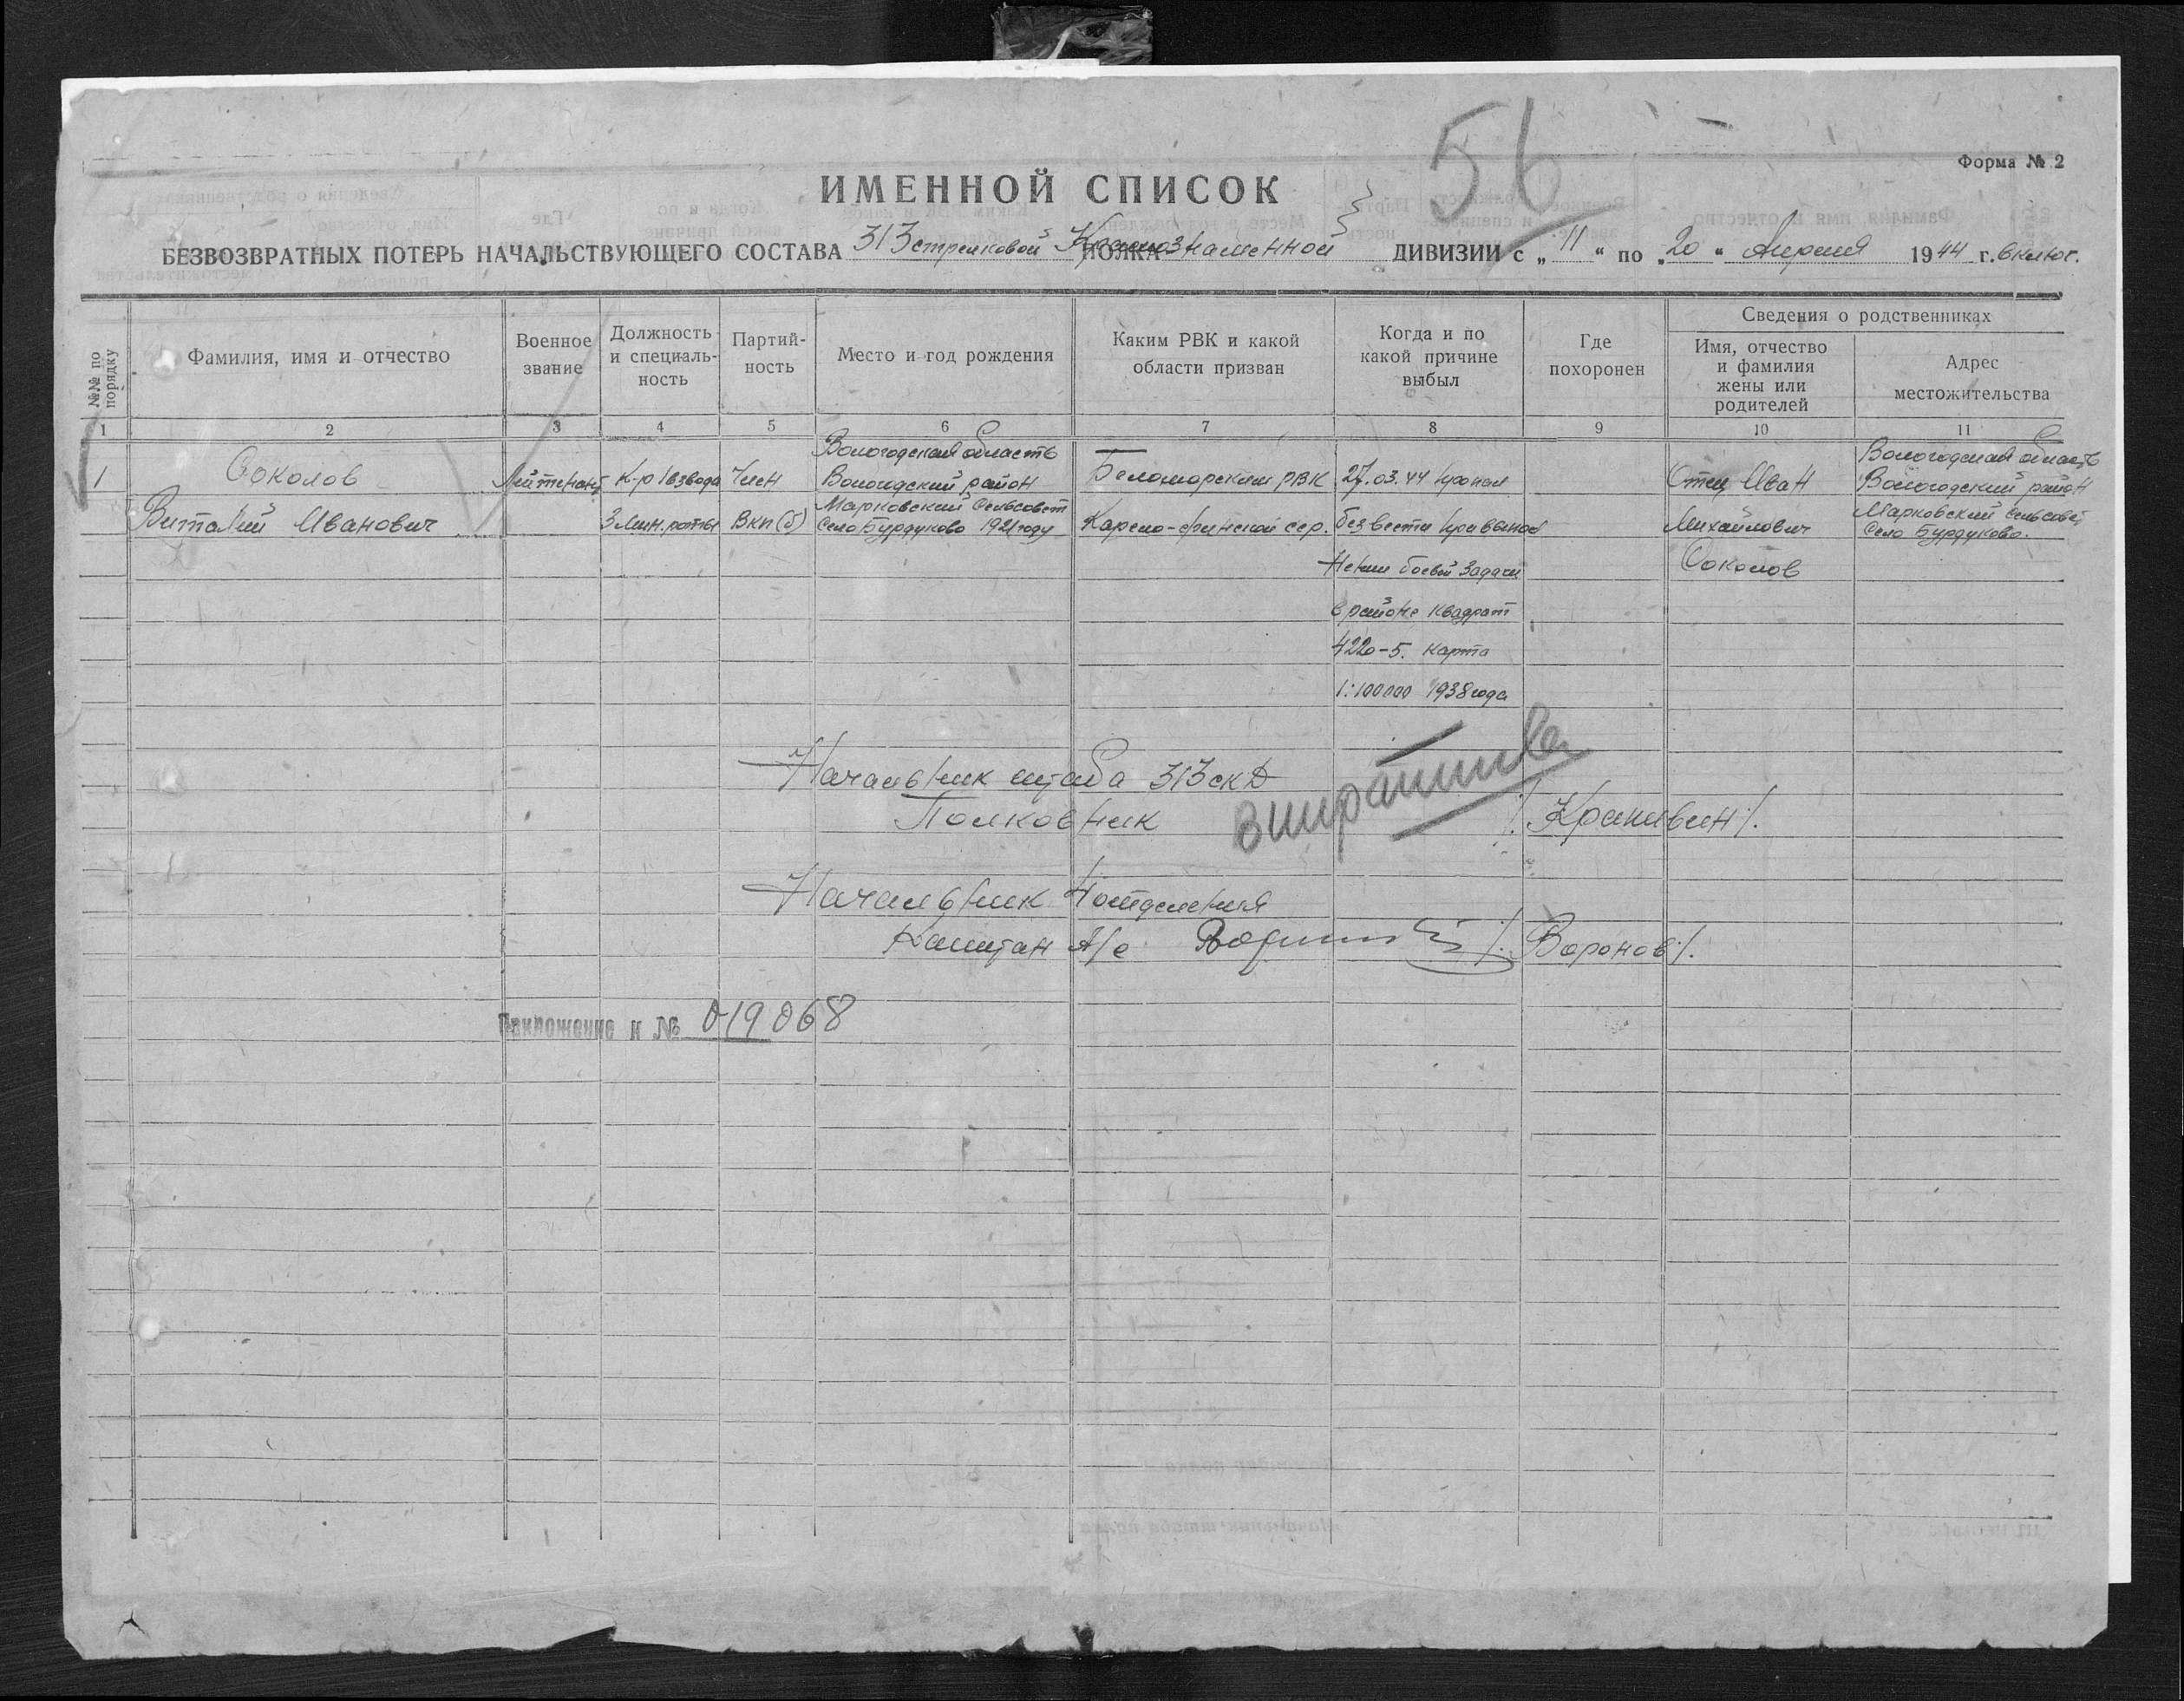 56
Форма № 2
ИМЕННОЙ СПИСОК
БЕЗВОЗВРАТНЫХ ПОТЕРЬ НАЧАЛЬСТВУЮЩЕГО СОСТАВА 313 стрелковой Краснознаменной ПОЛКА ДИВИЗИИ с „ 11 “ по „ 20 “ Апреля 1944 г. включ.
№№ по порядку
Фамилия, имя и отчество
Военное звание
Должность и специаль-
ность
Партий-
ность
Место и год рождения
Каким РВК и какой области призван
Когда и по какой причине выбыл
Где похоронен
Сведения о родственниках
Имя, отчество и фамилия жены или родителей
Адрес местожительства
1 2 3 4 5 6 7 8 9 10 11
1
Соколов
Виталий Иванович
Лейтенант
К-р 1 взвода
3 мин. роты
Член
ВКП(б)
Вологодская область
Вологодский район
Марковский Сельсовет
Село Бурдуково 1921 году
Беломорским РВК
Карело-финской сср.
27.03.44 пропал
без вести при выпол
нении боевой задачи
в районе квадрат
4220-5. карта
1:100000 1938 года
Отец Иван
Михайлович
Соколов
Вологодская область
Вологодский район
Марковский сельсовет
Село Бурдуково.
Начальник штаба 313 скд
Полковник /. Крапивин /.
Начальник 4 отделения
Капитан а/с /. Воронов /.
Приложение к № 019068